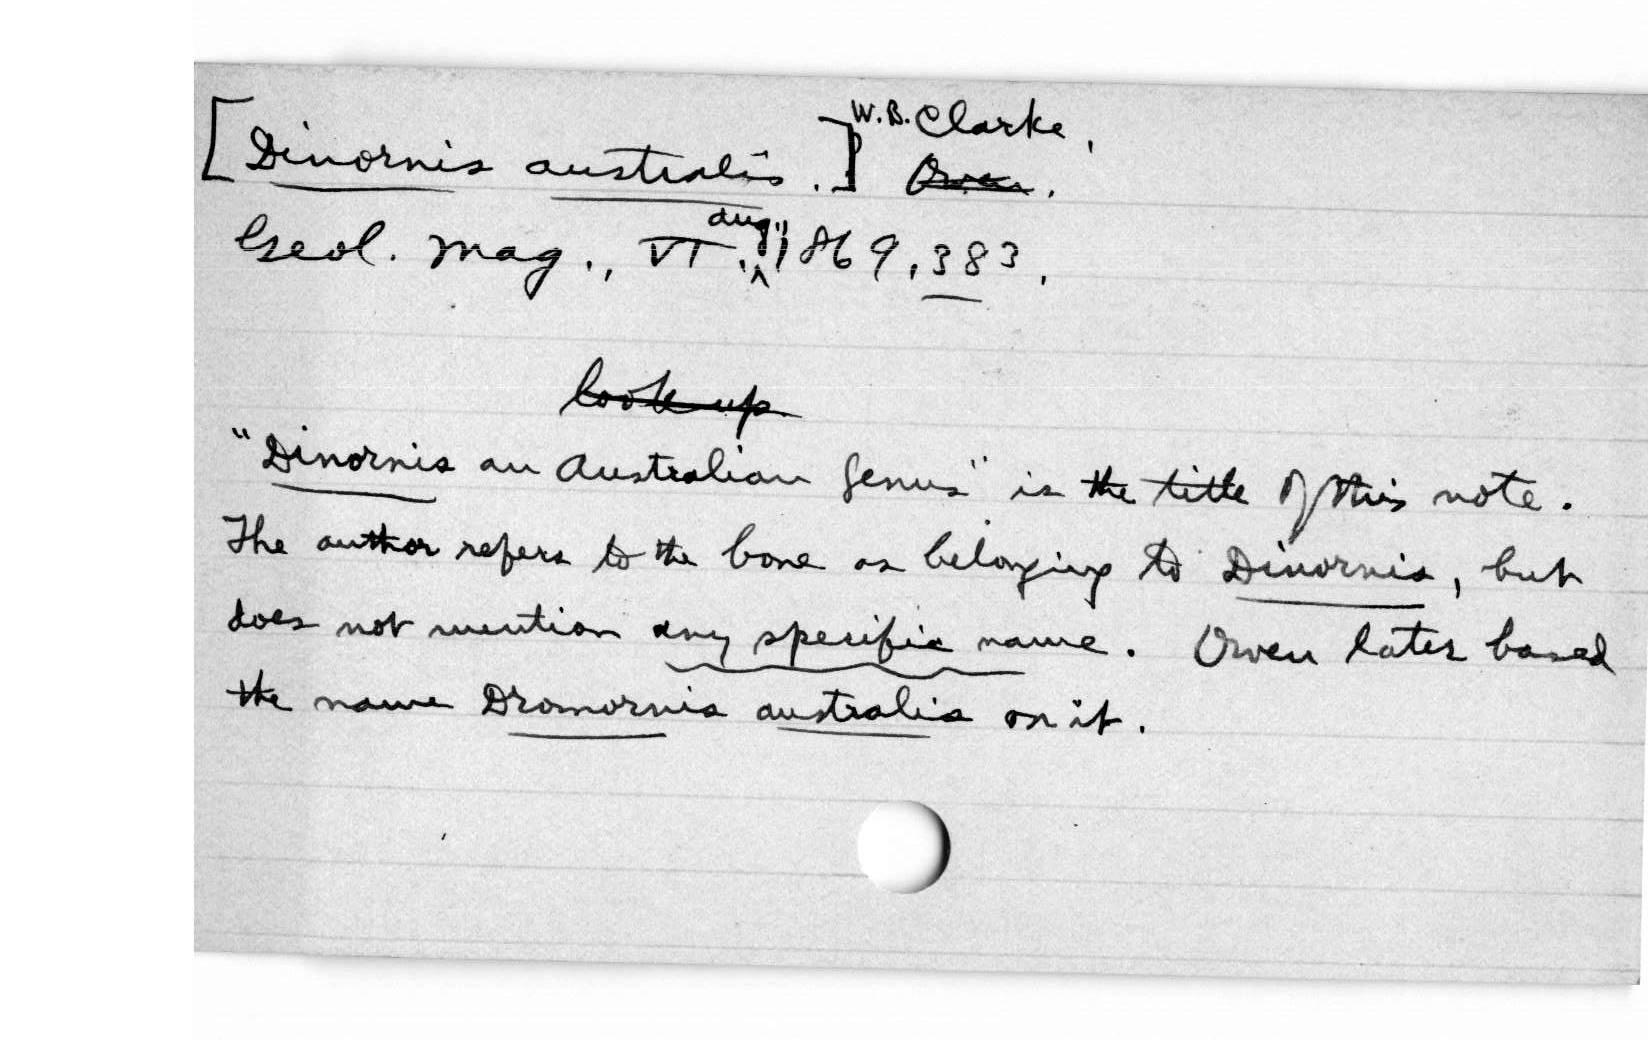 [Dinornis australis.] W.B. Clarke,
Owen.
Geol. Mag., VI, Aug., 1869, 383.
look up
"Dinornis an Australian Genus" is the title of this note.
The author refers to the bone as belonging to Dinornis, but
does not mention any specific name. Owen later based
the name Dromornis australis on it.